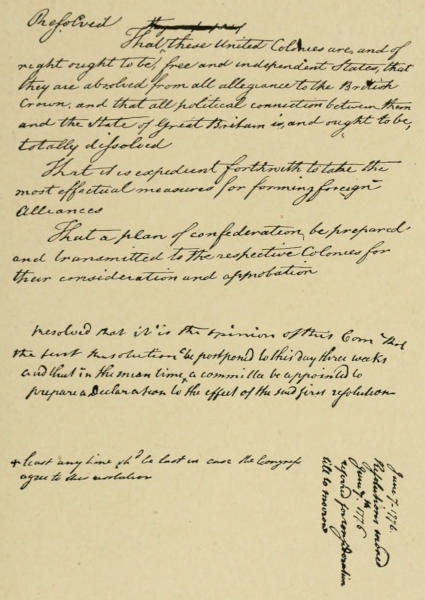 Resolved
That these United Colonies are, and of
right ought to be, free and independent States, that
they are absolved from all allegiance to the British
Crown, and that all political connection between them
and the State of Great Britain is, and ought to be,
totally dissolved
That it is expedient forthwith to take the
most effectual measures for forming foreign
Alliances
That a plan of confederation be prepared
and transmitted to the respective Colonies for
their consideration and approbation
resolved that it is the opinion of this Com that
the first Resolution be postpond to this day three weeks
and that in the mean time + a committee be appointed to
prepare a Declaration to the effect of the said first resolution
+ least any time shd be lost in case the Congress
agree to this resolution
June 7. 1776
Resolutions moved
June 7th 1776
referred for consideration
till to morrow